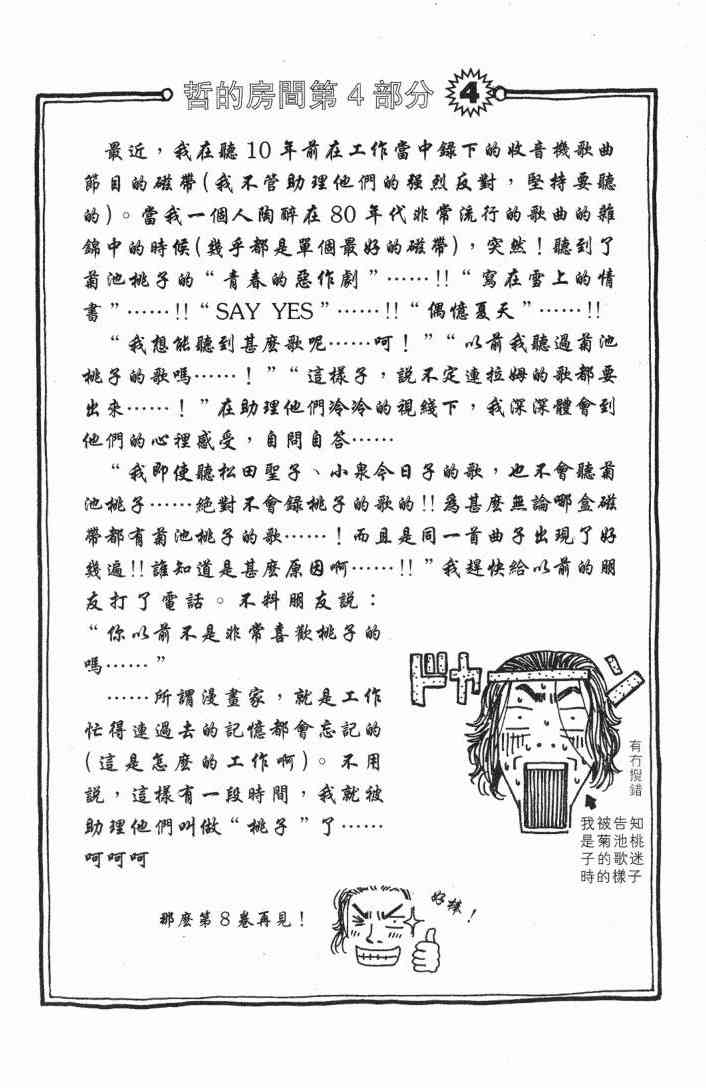 哲的房間第4部分 4
最近，我在聽10年前在工作當中録下的收音機歌曲
節目的磁帶(我不管助理他們的强烈反對，堅持要聽
的)。當我一個人陶醉在80年代非常流行的歌曲的雜
錦中的時候(幾乎都是單個最好的磁帶)，突然！聽到了
菊池桃子的“青春的惡作劇”……!!“寫在雪上的情
書”……!!“SAY YES”……!!“偶憶夏天”……!!
“我想能聽到甚麽歌呢……呵！”“以前我聽過菊池
桃子的歌嗎……！”“這樣子，説不定連拉姆的歌都要
出來……！”在助理他們冷冷的視綫下，我深深體會到
他們的心裡感受，自問自答……
“我即使聽松田聖子、小泉今日子的歌，也不會聽菊
池桃子……絶對不會録桃子的歌的!!爲甚麽無論哪盒磁
帶都有菊池桃子的歌……！而且是同一首曲子出現了好
幾遍!!誰知道是甚麽原因啊……!!”我趕快給以前的朋
友打了電話。不料朋友説：
“你以前不是非常喜歡桃子的
嗎……”
……所謂漫畫家，就是工作
忙得連過去的記憶都會忘記的
(這是怎麽的工作啊)。不用
説，這樣有一段時間，我就被
助理他們叫做“桃子”了……
呵呵呵
ドカーン
有冇搜錯
我被告知
是菊池桃
子的歌迷
時的樣子
那麽第8卷再見！
好樣！